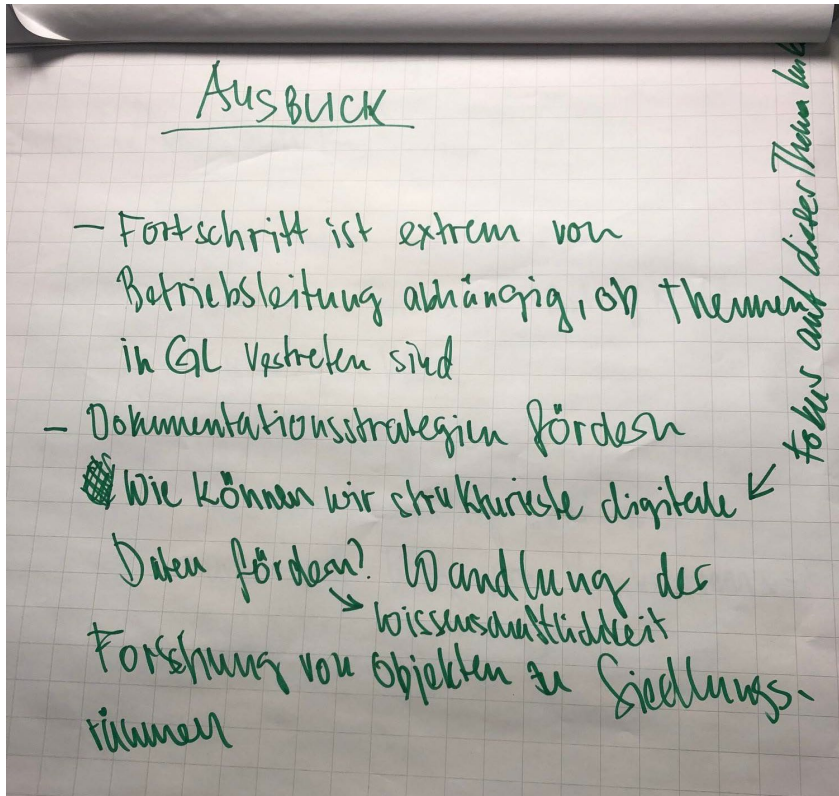 AUSBLICK
- Fortschritt ist extrem von
Betriebsleitung abhängig, ob Themen
in GL vertreten sind
- Dokumentationsstrategien fördern
Wie können wir strukturierte digitale
Daten fördern? Wandlung der
→ Wissenschaftlichkeit
Forschung von Objekten zu Siedlungs-
räumen
← Fokus auf dieses Thema